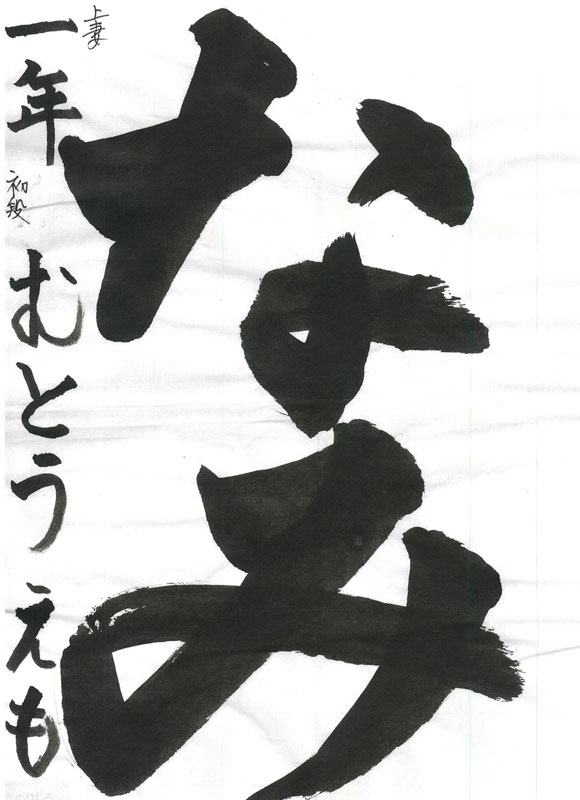 なみ
上妻
一年 初段 むとうえも